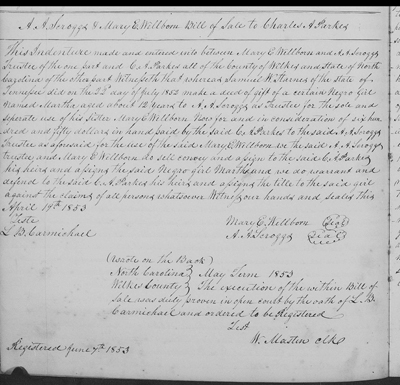 A. A. Scroggs & Mary E. Wellborn Bill of Sale to Charles A. Parkes
This Indenture made and entered into between Mary E. Wellborn and A. A. Scroggs
Trustee of the one part and C. A. Parkes all of the County of Wilkes and State of North
Carolina of the other part Witnesseth that whereas Samuel W. of the State of
Tennessee did on the day of July 1852 make a deed of gift of a certain Negro Girl
Named Martha aged about 12 years to A. A. Scroggs as Trustee for the sole and
seperate use of his Sister Mary E. Wellborn Now for and in consideration of six hun
dred and fifty dollars in hand paid by the said C. A. Parkes to the said A. A. Scroggs
Trustee as aforesaid for the use of the said Mary E. Wellborn we the said A. A. Scroggs
trustee and Mary E. Wellborn do sell convey and assign to the said C. A. Parkes
his heirs and assigns the said Negro girl Martha and we do warrant and
defend to the said C. A. Parkes his heirs and assigns the title to the said girl
against the claims of all persons whatsoever Witness our hands and seals this
April 19th 1853
Teste
Mary E. Wellborn (Seal)
L. B. Carmichael
A. A. Scroggs (Seal)
(wrote on the Back)
North Carolina } May Term 1853
Wilkes County } The execution of the within Bill of
Sale was duly proven in open court by the oath of L. B.
Carmichael and ordered to be Registered
Test
W. Mastin clk
Registered June 7th 1853